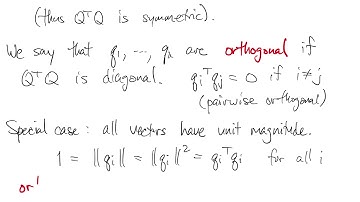 (thus QᵀQ is symmetric).
We say that q₁, ⋯, qₖ are orthogonal if
QᵀQ is diagonal. qᵢᵀqⱼ = 0 if i≠j
(pairwise orthogonal)
Special case: all vectors have unit magnitude.
1 = ‖qᵢ‖ = ‖qᵢ‖² = qᵢᵀqᵢ for all i
or